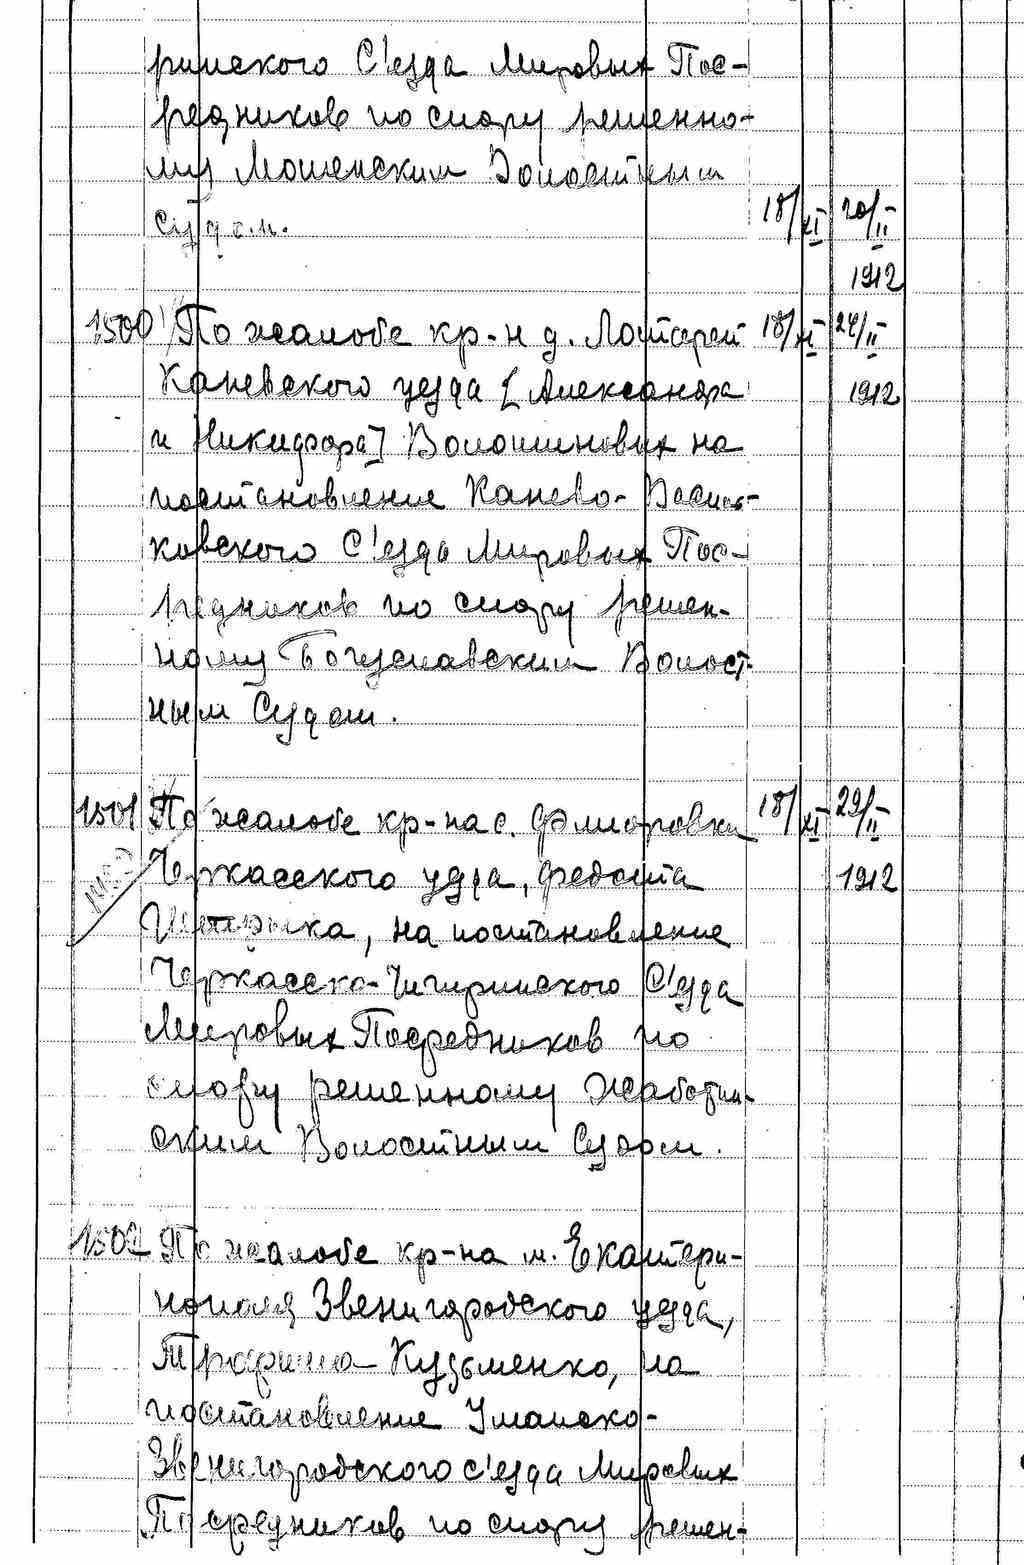 ринского С'езда Мировых Пос-
редников по спору решенно-
му Мошенским Волостным
Судом. 18/XI 20/II
1912
1500 По жалобе кр-н д. Лоттерей 18/XI 24/II
Каневского уезда [Александра 1912
и Никифора] Волошиновых на
постановление Канево-Василь-
ковского С'езда Мировых Пос-
редников по спору решен-
ному Богуславским Волост-
ным Судом.
1501 По жалобе кр-на с. Флиоровки 18/XI 29/II
Черкасского уезда, Федота 1912
на постановление
Черкасско-Чигиринского С'езда
Мировых Посредников по
спору решенному Жаботин-
ским Волостным Судом.
1502 По жалобе кр-на м. Екатери-
нополя Звенигородского уезда,
Трофима Кузьменко, на
постановление Уманско-
Звенигородского с'езда Мировых
Посредников по спору решен-